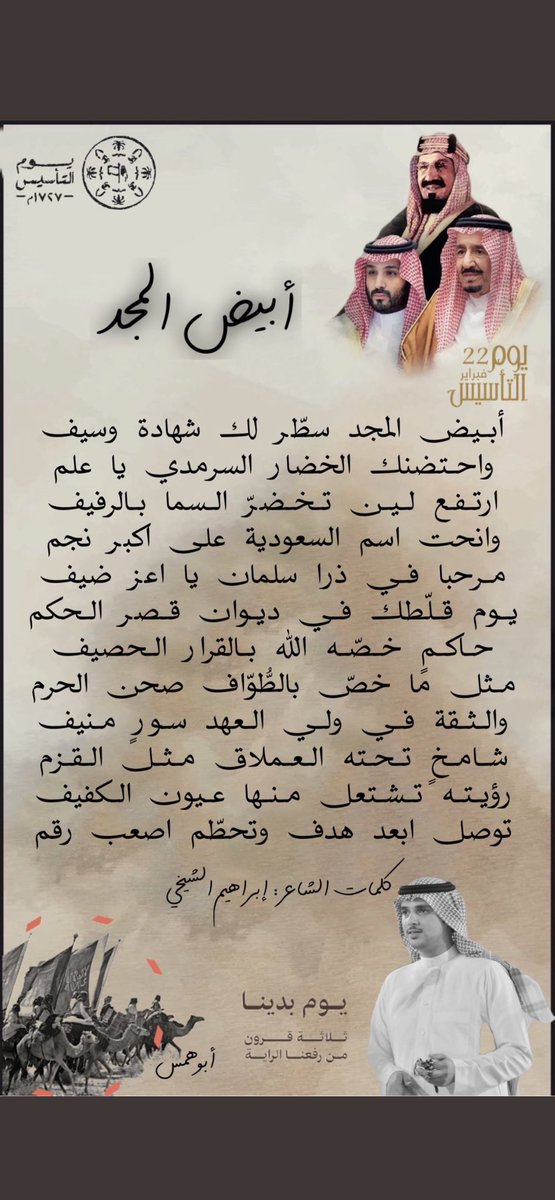 يوم
التأسيس
١٧٢٧م
أبيض المجد
يوم 22
فبراير
التأسيس
أبيض المجد سطّر لك شهادة وسيف
واحتضنك الخضار السرمدي يا علم
ارتفع لين تخضرّ السما بالرفيف
وانحت اسم السعودية على اكبر نجم
مرحبا في ذرا سلمان يا اعز ضيف
يوم قلّطك في ديوان قصر الحكم
حاكمٍ خصّه الله بالقرار الحصيف
مثل ما خصّ بالطُّوّاف صحن الحرم
والثقة في ولي العهد سورٍ منيف
شامخٍ تحته العملاق مثل القزم
رؤيته تشتعل منها عيون الكفيف
توصل ابعد هدف وتحطّم اصعب رقم
كلمات الشاعر: إبراهيم الشيخي
يوم بدينا
ثلاثة قرون
من رفعنا الراية
أبو همس